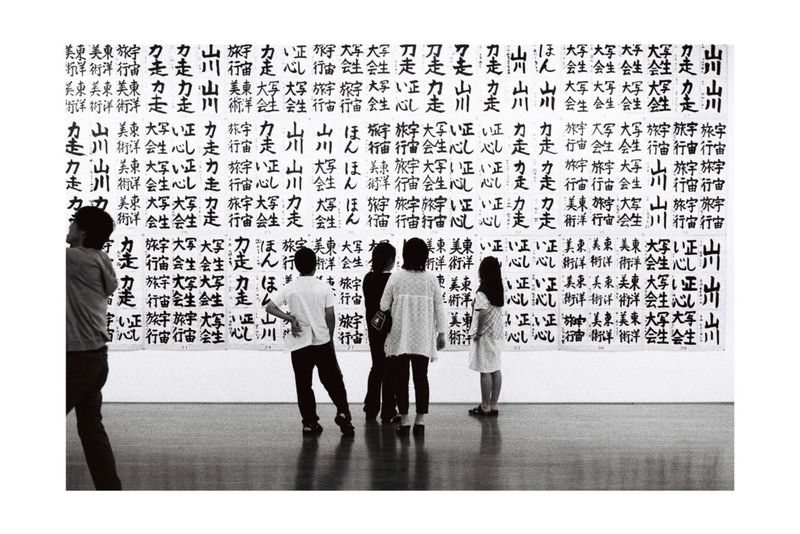 東洋美術 東洋美術 宇宙旅行 力走 力走 山川 宇宙旅行 力走 正しい心 宇宙旅行 写生大会 写生大会 力走 力走 力走 力走 山川 ほん 写生大会 写生大会 写生大会 写生大会 力走 山川
東洋美術 東洋美術 宇宙旅行 力走 力走 山川 東洋美術 力走 正しい心 宇宙旅行 宇宙旅行 写生大会 正しい心 力走 山川 力走 山川 山川 写生大会 写生大会 写生大会 写生大会 力走 山川
力走 山川 東洋美術 写生大会 正しい心 力走 宇宙旅行 力走 山川 山川 ほん 宇宙旅行 宇宙旅行 写生大会 正しい心 正しい心 力走 力走 宇宙旅行 写生大会 写生大会 宇宙旅行 宇宙旅行 宇宙旅行
力走 山川 東洋美術 写生大会 正しい心 力走 宇宙旅行 正しい心 山川 写生大会 ほん 東洋美術 宇宙旅行 宇宙旅行 正しい心 正しい心 力走 力走 宇宙旅行 宇宙旅行 写生大会 山川 宇宙旅行 宇宙旅行
力走 山川 東洋美術 写生大会 正しい心 力走 宇宙旅行 写生大会 力走 写生大会 ほん 東洋美術 宇宙旅行 宇宙旅行 正しい心 正しい心 力走 力走 東洋美術 宇宙旅行 写生大会 山川 宇宙旅行 宇宙旅行
力走 宇宙旅行 写生大会 写生大会 力走 ほん 宇宙旅行 東洋美術 写生大会 東洋美術 正しい心 正しい心 正しい心 東洋美術 東洋美術 東洋美術 写生大会 正しい心 山川
力走 宇宙旅行 写生大会 写生大会 力走 ほん 宇宙旅行 東洋美術 正しい心 正しい心 東洋美術 東洋美術 東洋美術 写生大会 正しい心 山川
正しい心 宇宙旅行 写生大会 写生大会 正しい心 山川 宇宙旅行 東洋美術 正しい心 正しい心 宇宙旅行 東洋美術 東洋美術 写生大会 写生大会 山川